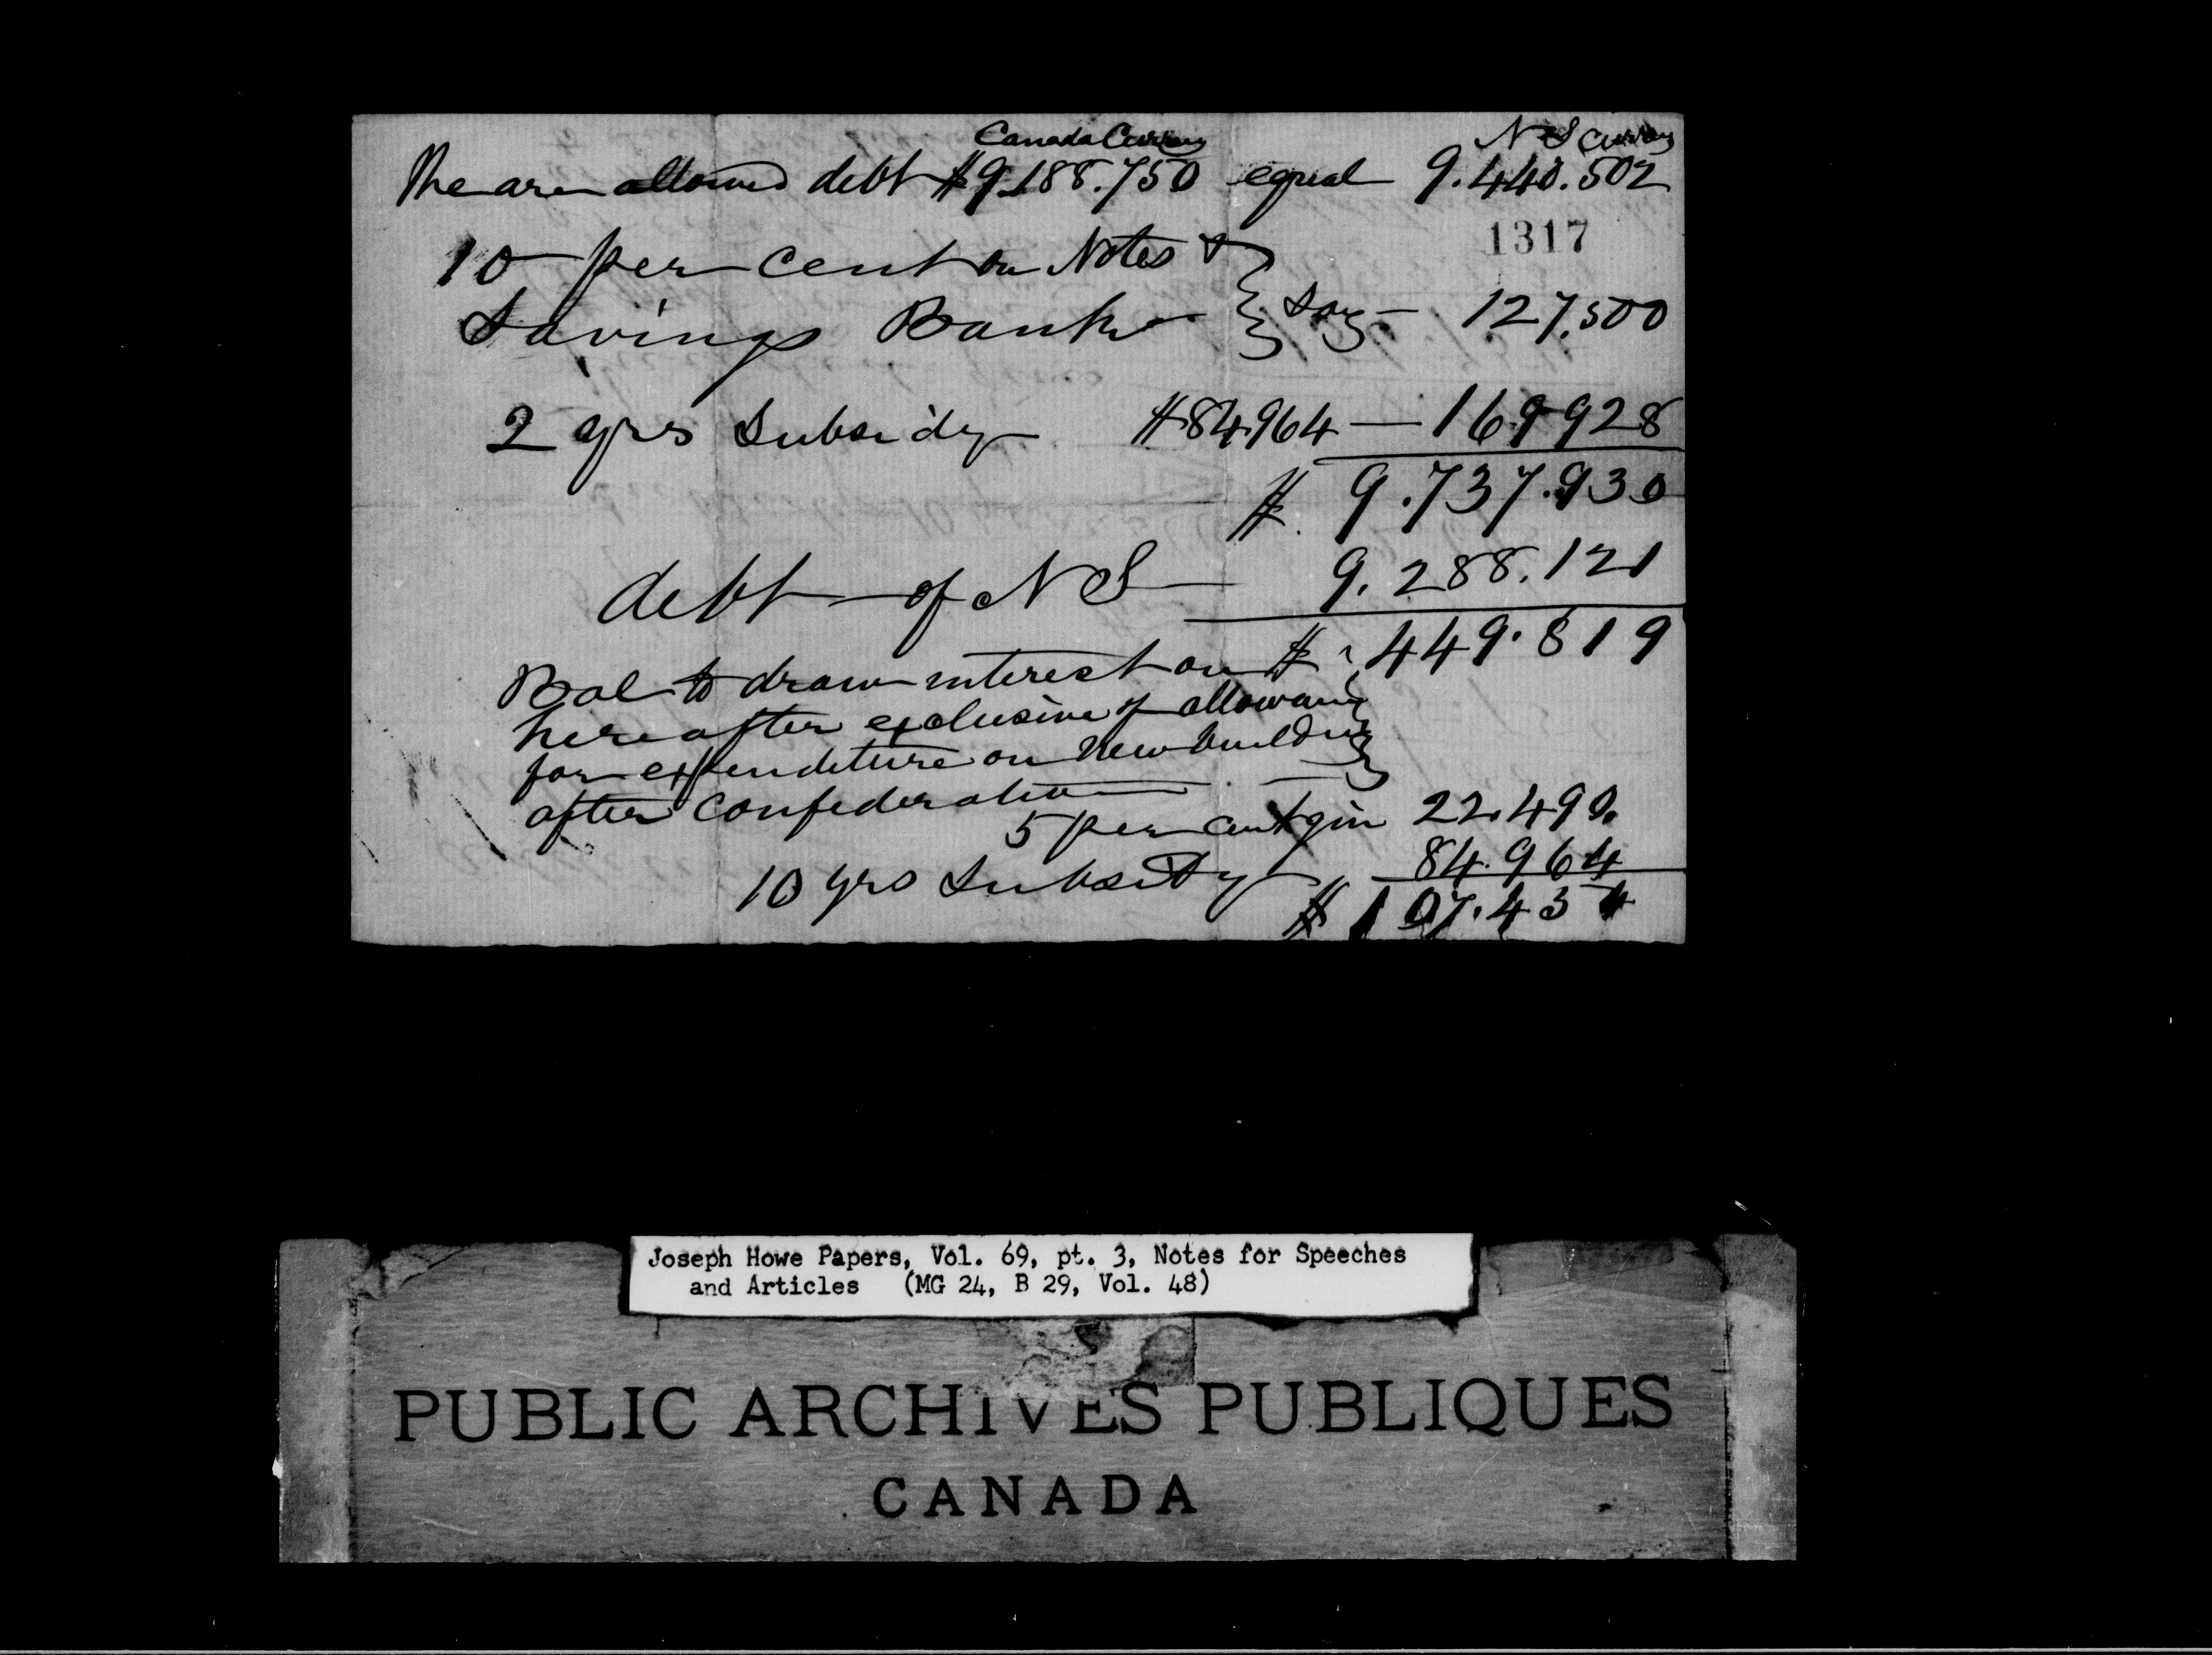 Canada Currey N S Currey
We are allowed debt $9.188.750 equal 9.440.502
1317
10 per cent on Notes &
Savings Bank } Say — 127,500
2 yrs Subsidy $84964 — 169928
$ 9.737.930
debt of N S — 9.288.121
$ 449.819
Bal to draw interest on $
hereafter exclusive of allowance
for expenditure on new building
after Confederation
5 per cent gin 22.490.
10 yrs Subsidy 84.964
$ 107.454
Joseph Howe Papers, Vol. 69, pt. 3, Notes for Speeches
and Articles (MG 24, B 29, Vol. 48)
PUBLIC ARCHIVES PUBLIQUES
CANADA